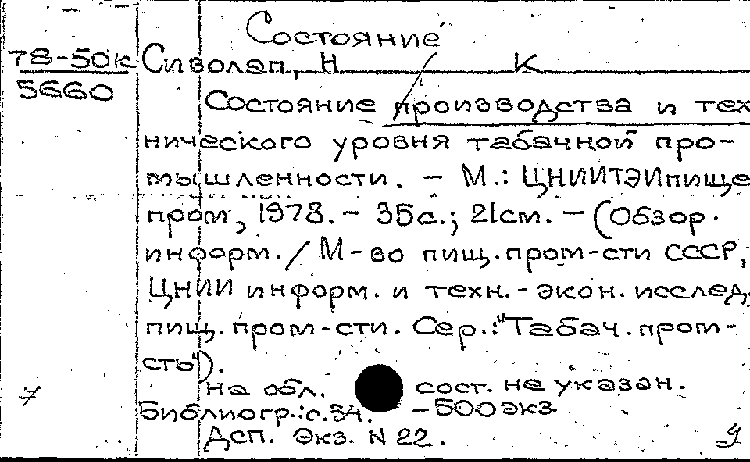 Состояние
78-50к Сиволап, Н К
5660
Состояние производства и тех
нического уровня табачной про-
мышленности. - М.: ЦНИИТЭИпище
пром, 1978. - 35с.; 21см. - (Обзор.
информ. / М-во пищ. пром-сти СССР,
ЦНИИ информ. и техн.-экон. исслед.
пищ. пром-сти. Сер.: "Табач. пром-
сть").
На обл. сост. не указан.
Библиогр.: с. 34. -500 экз
Дсп. Экз. N 22.